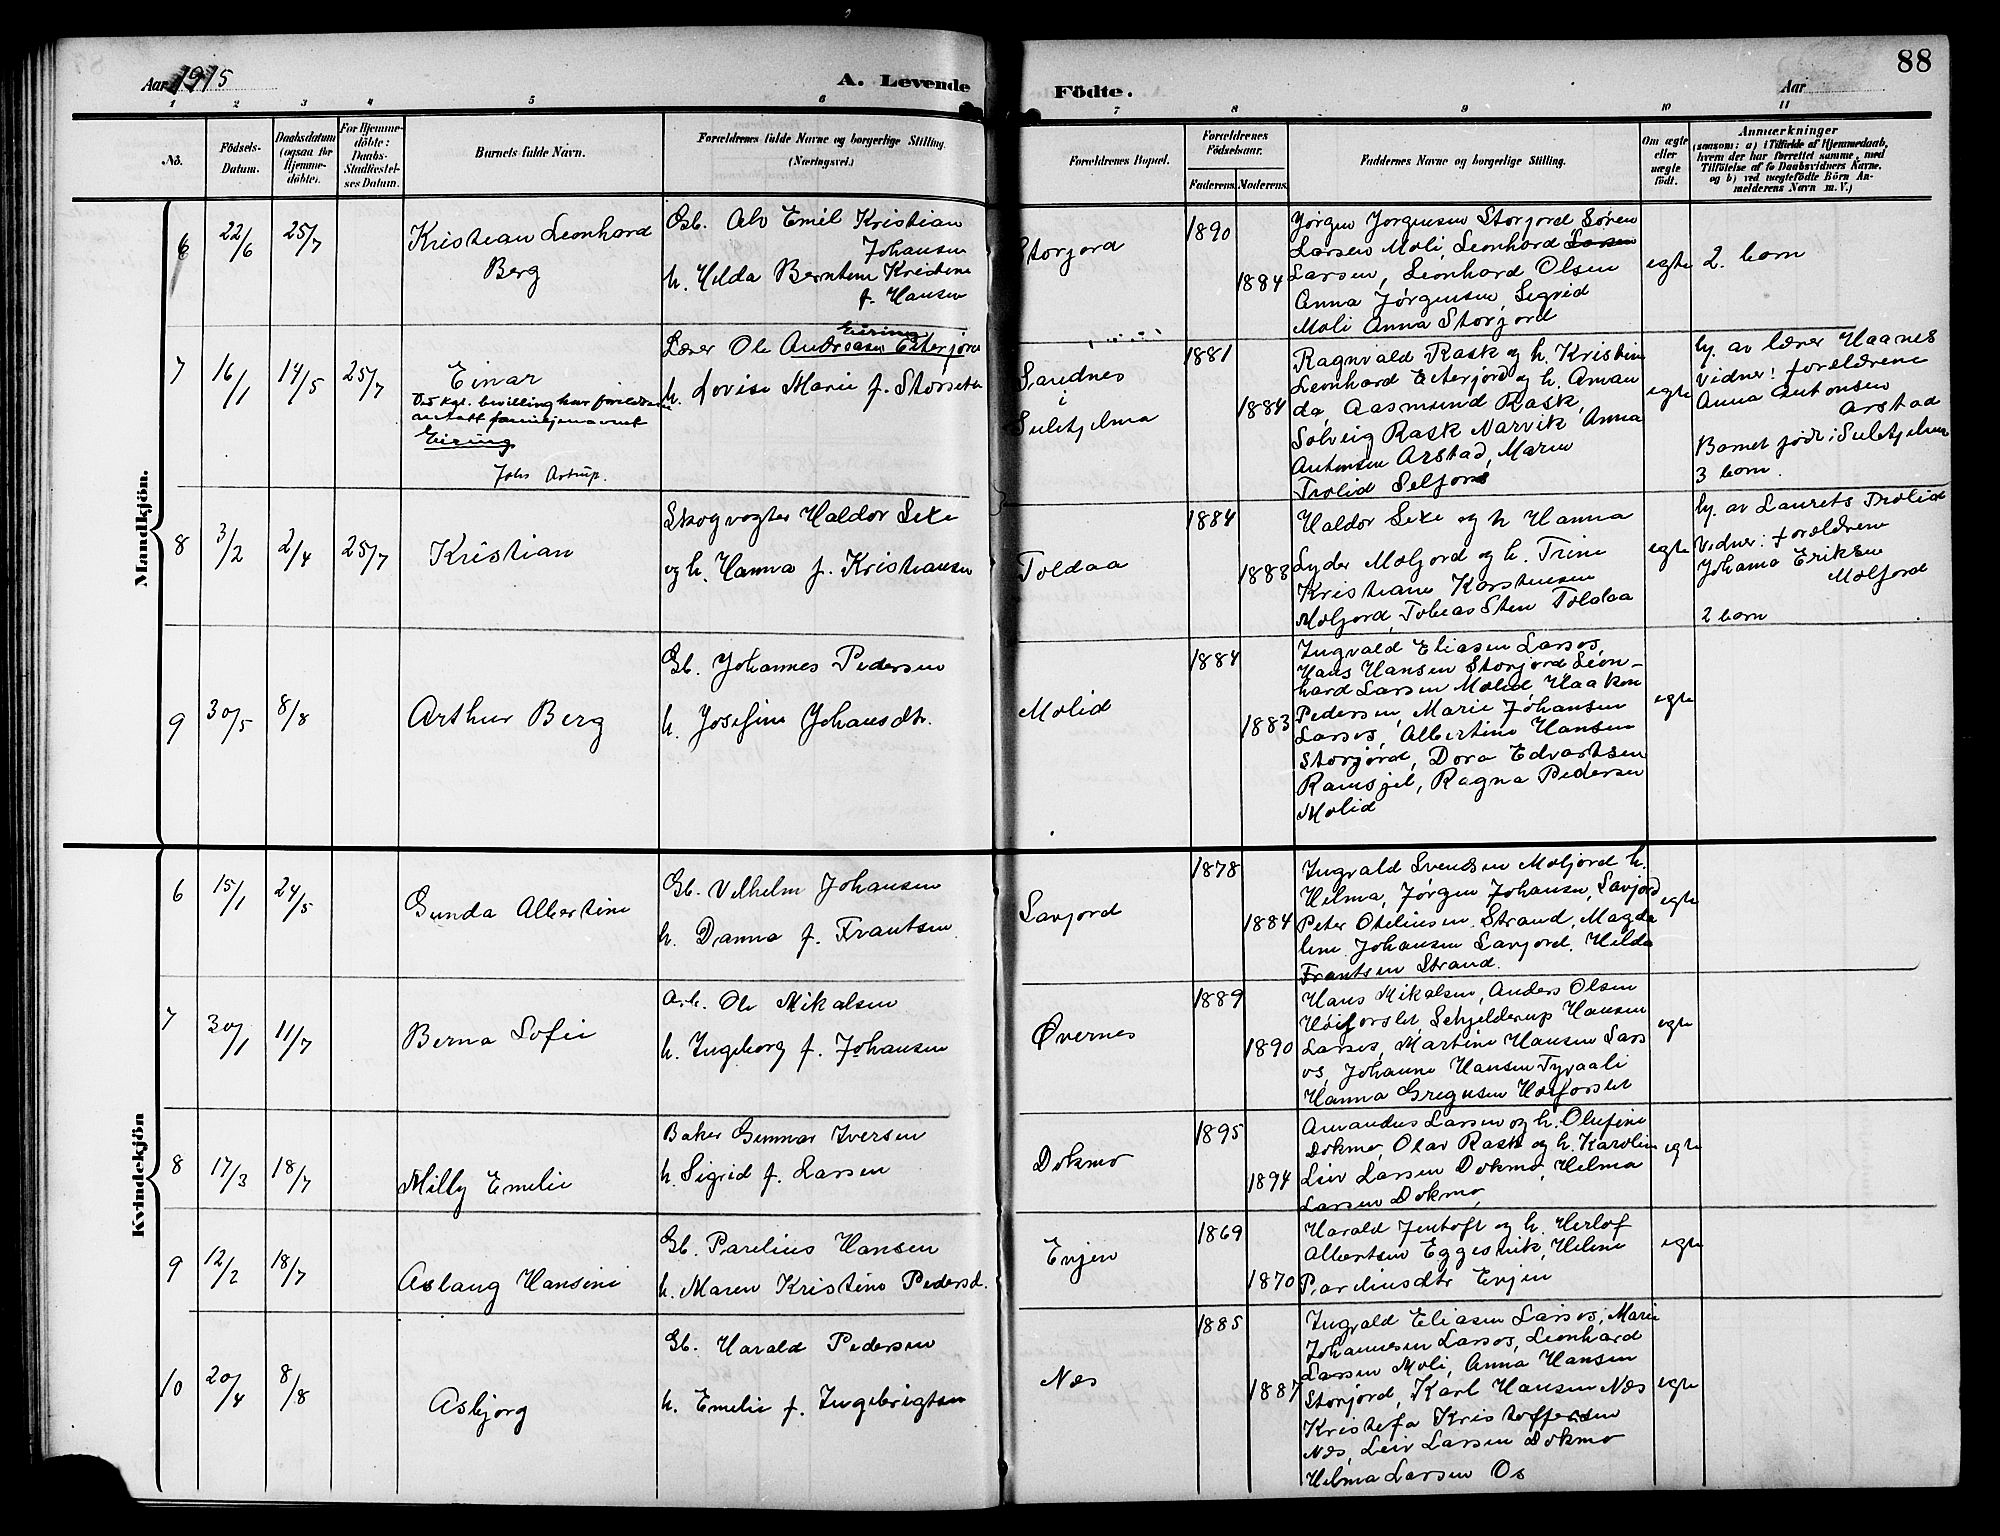 88
Aar 1915
A. Levende
Födte.
Aar
1 2 3 4 5 6 7 8 9 10 11
No.
Födsels-
Datum.
Daabsdatum
(ogsaa for
Hjemme-
döbte).
For Hjemme-
döbte:
Daabs-
Stadfæstel-
ses Datum.
Barnets fulde Navn.
Forældrenes fulde Navne og borgerlige Stilling.
(Næringsvei.)
Forældrenes Bopæl.
Forældrenes
Födselsaar.
Faderens.
Moderens.
Faddernes Navne og borgerlige Stilling.
Om ægte
eller
uægte
födt.
Anmærkninger
(saasom: a) i Tilfælde af Hjemmedaab,
hvem der har forrettet samme, med
Tilföielse af to Daabsvidners Navne,
og b) ved uægtefödte Börn An-
melderens Navn m. V.)
Mandkjön.
6
22/6
25/7
Kristian Leonhard
Berg
Gb. Alv Emil Kristian
Johansen
h. Hilda Berntine Kristine
f. Hansen
Storjord
1890
1884
Jørgen Jørgensen Storjord Søren
Larsen Moli, Leonhard Larsen
Larsen, Leonhard Olsen
Anna Jørgensen, Sigrid
Moli Anna Storjord
egte
2. barn
7
16/1
14/5
25/7
Einar
Ved kgl. bevilling har forældrene
antatt familjenavnet
Eising
Johs Astrup.
Eising
Lærer Ole Andreasen Esterjord
h. Lovise Marie f. Storseten
Sandnes
i
Sulitjelma
1881
1884
Ragnvald Rask og h. Kristine
Leonhard Esterjord og h. Aman
da, Aasmund Rask,
Solveig Rask Narvik, Anna
Antonsen Arstad, Maren
Trolid Selfors
egte
hj. av lærer Haanes
Vidner: forældrene
Anna Antonsen
Arstad
Barnet født i Sulitjelma
3 barn.
8
3/2
2/4
25/7
Kristian
Skogvogter Haldor Sexe
og h. Hanna f. Kristiansen
Toldaa
1884
1883
Haldor Sexe og h Hanna
Lyder Moljord og h. Trine
Kristiane Karstensen
Moljord, Tobias Sten Toldaa
egte
hj. av Laurits Trolid
Vidner: forældrene
Johanna Eriksen
Moljord
2 barn
9
30/5
8/8
Arthur Berg
Gb. Johannes Pedersen
h. Josefine Johansdtr.
Molid
1884
1883
Ingvald Eliasen Larsos,
Hans Hansen Storjord Leon-
hard Larsen Molid, Haakon
Pedersen, Marie Johansen
Larsos, Albertine Hansen
Storjord, Dora Edvartsen
Ramsjel, Ragna Pedersen
Molid
egte
Kvindekjön
6
15/1
24/5
Gunda Albertine
Gb. Vilhelm Johansen
h. Danna f. Frantsen
Savjord
1878
1884
Ingvald Svendsen Moljord h.
Hilma, Jørgen Johansen, Savjord
Peter Otelinsen Strand, Magda
lene Johansen Savjord, Hilda
Frantsen Strand.
egte
7
30/1
11/7
Berna Sofie
Arb. Ole Mikalsen
h. Ingeborg f. Johansen
Øvernes
1889
1890
Hans Mikalsen, Anders Olsen
Høiforslet, Schjelderup Hansen
Larsos, Martine Hansen Lars
os, Johanne Hansen Tyvaali
Hanna Gregusen Høiforslet
egte
8
17/3
18/7
Milly Emelie
Baker Gunnar Iversen
h. Sigrid f. Larsen
Dokmo
1895
1894
Amandus Larsen og h. Olufine
Dokmo, Olav Rask og h. Karoline
Leiv Larsen Dokmo, Hilma
Larsen Dokmo,
egte
9
12/2
18/7
Aslaug Hansine
Gb. Parelius Hansen
h. Maren Kristine Pedersd.
Evjen
1869
1870
Harald Jentoft og h. Herlof
Albertsen Eggesvik, Heline
Pareliusdtr Evjen
egte
10
20/4
8/8
Asbjørg
Gb. Harald Pedersen
h. Emelie f. Ingebrigtsen
Næs
1885
1887
Ingvald Eliasen Larsos, Marie
Johannesen Larsos, Leonhard
Larsen Moli, Anna Hansen
Storjord, Karl Hansen Næs
Kristofa Kristoffersen
Næs, Leiv Larsen Dokmo
Hilma Larsen Os
egte